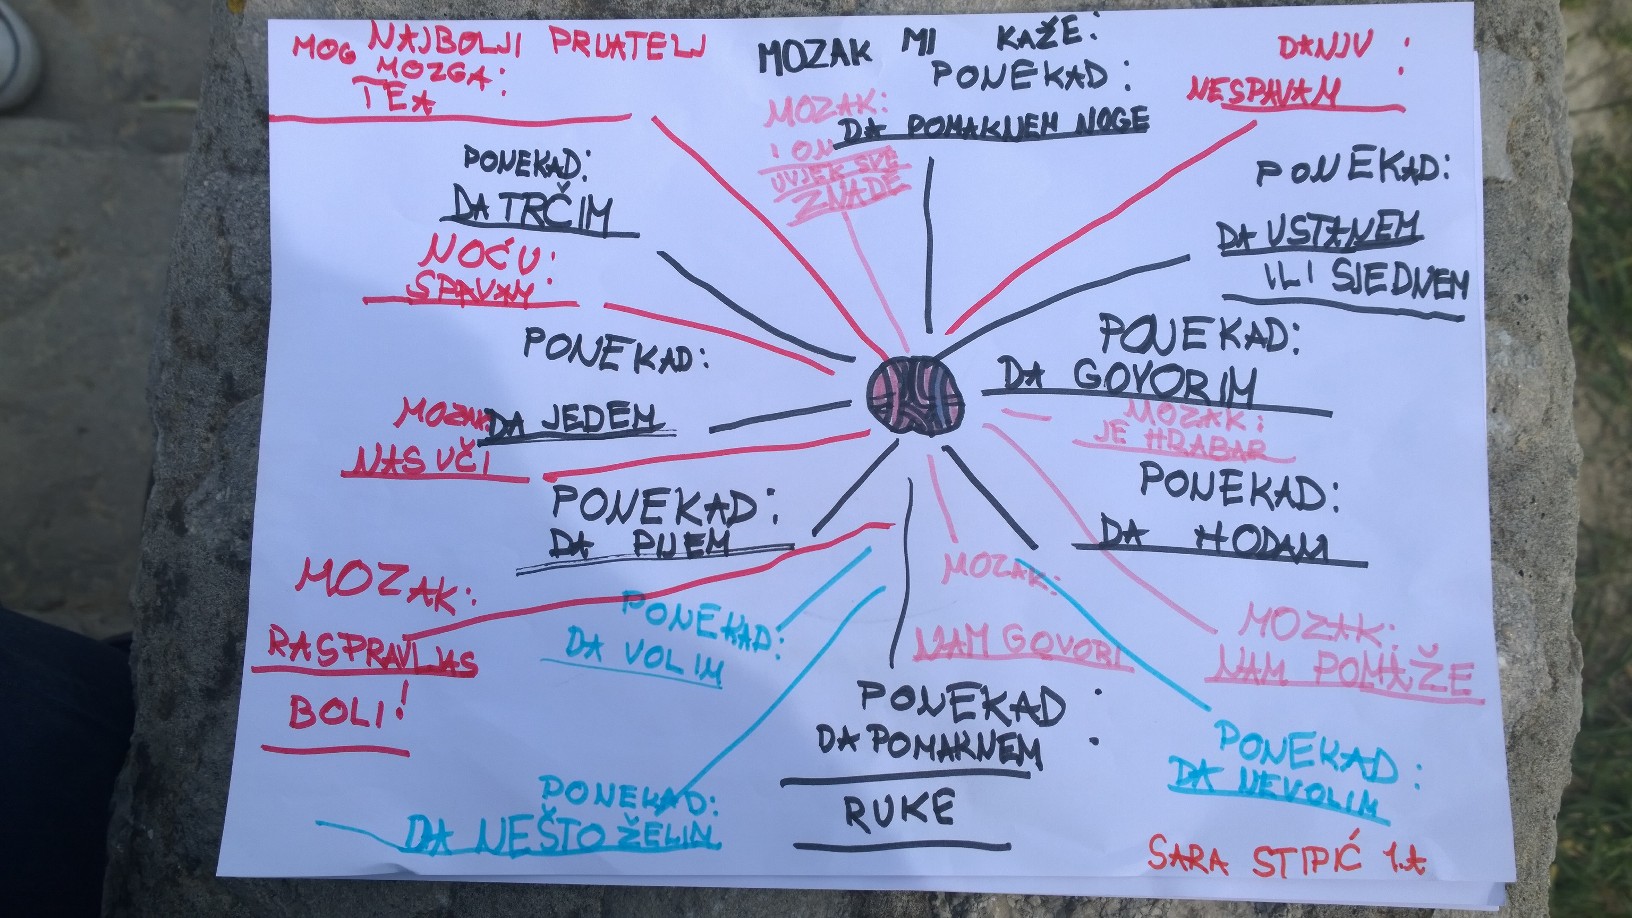 MOG NAJBOLJI PRIJATELJ
MOZGA:
TEA
MOZAK MI KAŽE:
PONEKAD:
DA POMAKNEM NOGE
MOZAK:
I ON
UVJEK SVE
ZNADE
DANJU:
NESPAVAM
PONEKAD:
DA TRČIM
PONEKAD:
DA USTANEM
ILI SJEDNEM
NOĆU:
SPAVAM
PONEKAD:
DA JEDEM
PONEKAD:
DA GOVORIM
MOZAK:
NAS UČI
MOZAK:
JE HRABAR
PONEKAD:
DA PIJEM
PONEKAD:
DA HODAM
MOZAK:
RASPRAVLJAS
BOLI!
PONEKAD:
DA VOLIM
MOZAK:
NAM GOVORI
MOZAK:
NAM POMAŽE
PONEKAD:
DA POMAKNEM
RUKE
PONEKAD:
DA NEVOLIM
PONEKAD:
DA NEŠTO ŽELIM
SARA STIPIĆ 1.A